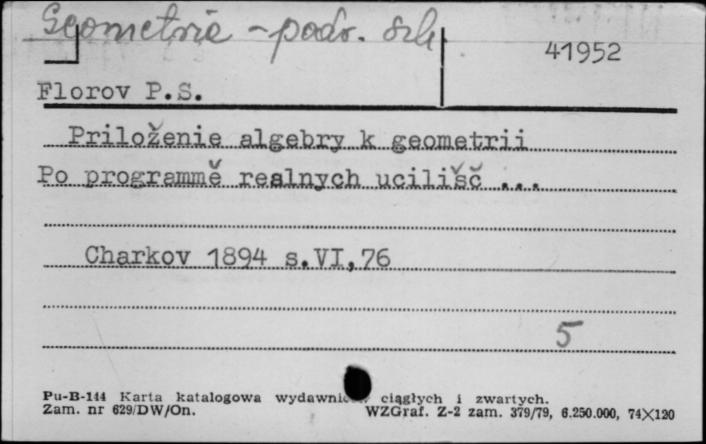 Geometrie - podr. szk.
41952
Florov P.S.
Priloženie algebry k geometrii
Po programmě realnych ucilišč ...
Charkov 1894 s.VI,76
5
Pu-B-144 Karta katalogowa ciągłych i zwartych.
Zam. nr 629/DW/On. WZGraf. Z-2 zam. 379/79, 6.250.000, 74×120